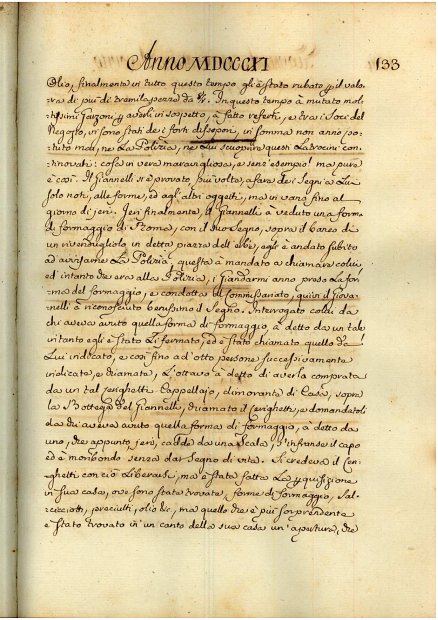 Anno MDCCCXII
133
Olio, finalmente in tutto questo tempo gli è stato rubato per il valo-
ra di più di tramila pezze da 8/r. In questo tempo à mutato mol-
tissimi Garzoni, per averli in sospetto, à fatto referti, e tra i Socj del
Negozio, vi sono stati dei forti dissapori, in somma non anno po-
tuto mai, ne La Polizia, ne Lui scuoprire questi Latrocinj con-
tinovati: cosa in vero maravigliosa, e senz'esempio! ma pure
è così. Il Giannelli si è provato, più volte, a fare dei Segni a Lui
solo noti, alle forme, ed agl'altri oggetti, ma in vano fino al
giorno di jeri. Jeri finalmente, il Giannelli à veduto una forma
di formaggio di Roma, con il suo Segno, sopra il banco di
un rivendugliolo in detta piazza dell'erbe, egli è andato subito
ad avvisarne La Polizia, questa à mandato a chiamare colui
ed intanto che era alla Polizia, i Giandarmi anno preso La for-
ma del formaggio, e condotta al Commissariato, quivi il Giova-
nelli à riconosciuto benissimo il Segno. Interrogato colui da
chi aveva avuto quella forma di formaggio, à detto da un tale
in tanto egli è stato Lì fermato, ed è stato chiamato quello da
Lui indicato, e così fino ad otto persone successivamente
indicate, e chiamate, L'ottavo à detto di averla comprata
da un tal Cerighetti Cappellajo, dimorante di Casa, sopra
la Bottega del Giannelli, chiamato il Cerighetti, e domandatoli
da chi aveva avuto quella forma di formaggio, à detto da
uno, che appunto jeri, cadde da una Scala, s'infranse il capo
ed è moribondo senza dar segno di vita. Si credeva il Ceri-
ghetti con ciò Liberarsi, ma è stata fatta La perquisizione
in sua casa, ove sono state trovate, forme di formaggio, Sal-
cicciotti, preciutti, olio &c, ma quello che è più sorprendente
è stato trovato in un canto della sua casa un'apertura, che